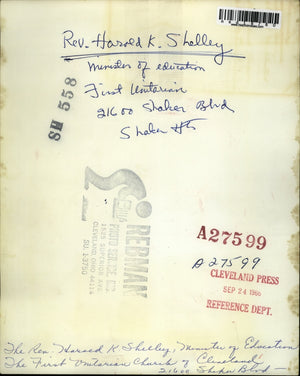 Rev. Harold K. Shelley
Minister of education
First Unitarian
21600 Shaker Blvd
Shaker Hts
SH 558
REBMAN
PHOTO SERVICE INC
1525 SUPERIOR AVE
CLEVELAND, OHIO 44114
SU. 1-3750
A27599
A27599
CLEVELAND PRESS
SEP 24 1966
REFERENCE DEPT.
The Rev. Harold K Shelley, Minister of Education
The First Unitarian Church of Cleveland
21600 Shaker Blvd —